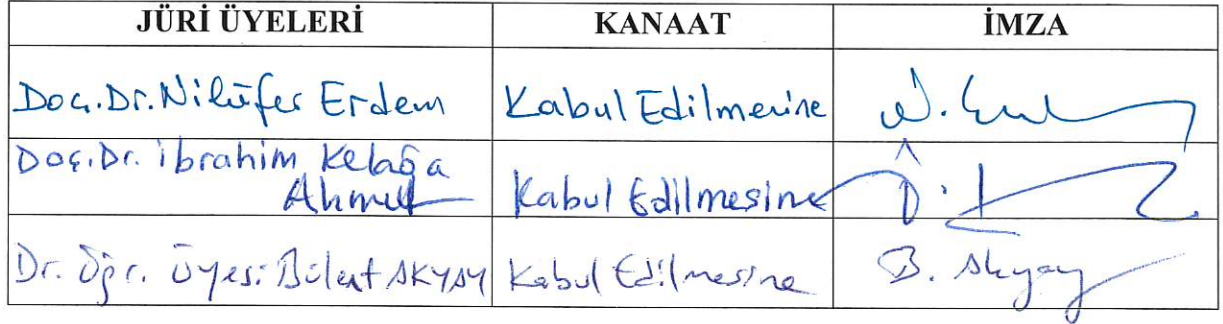 JÜRİ ÜYELERİ KANAAT İMZA
Doç.Dr.Nilüfer Erdem Kabul Edilmesine N. 
Doç.Dr. İbrahim Kelağa
Ahmet Kabul Edilmesine
Dr. Öğr. Üyesi Bülent AKYAY Kabul Edilmesine B. Akyay